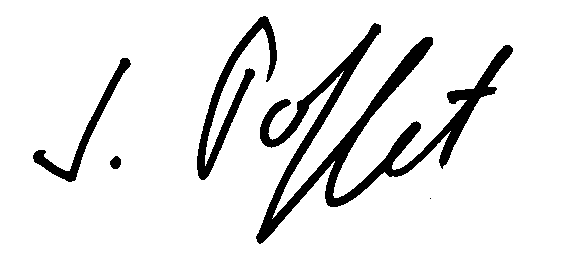 J. Poffet